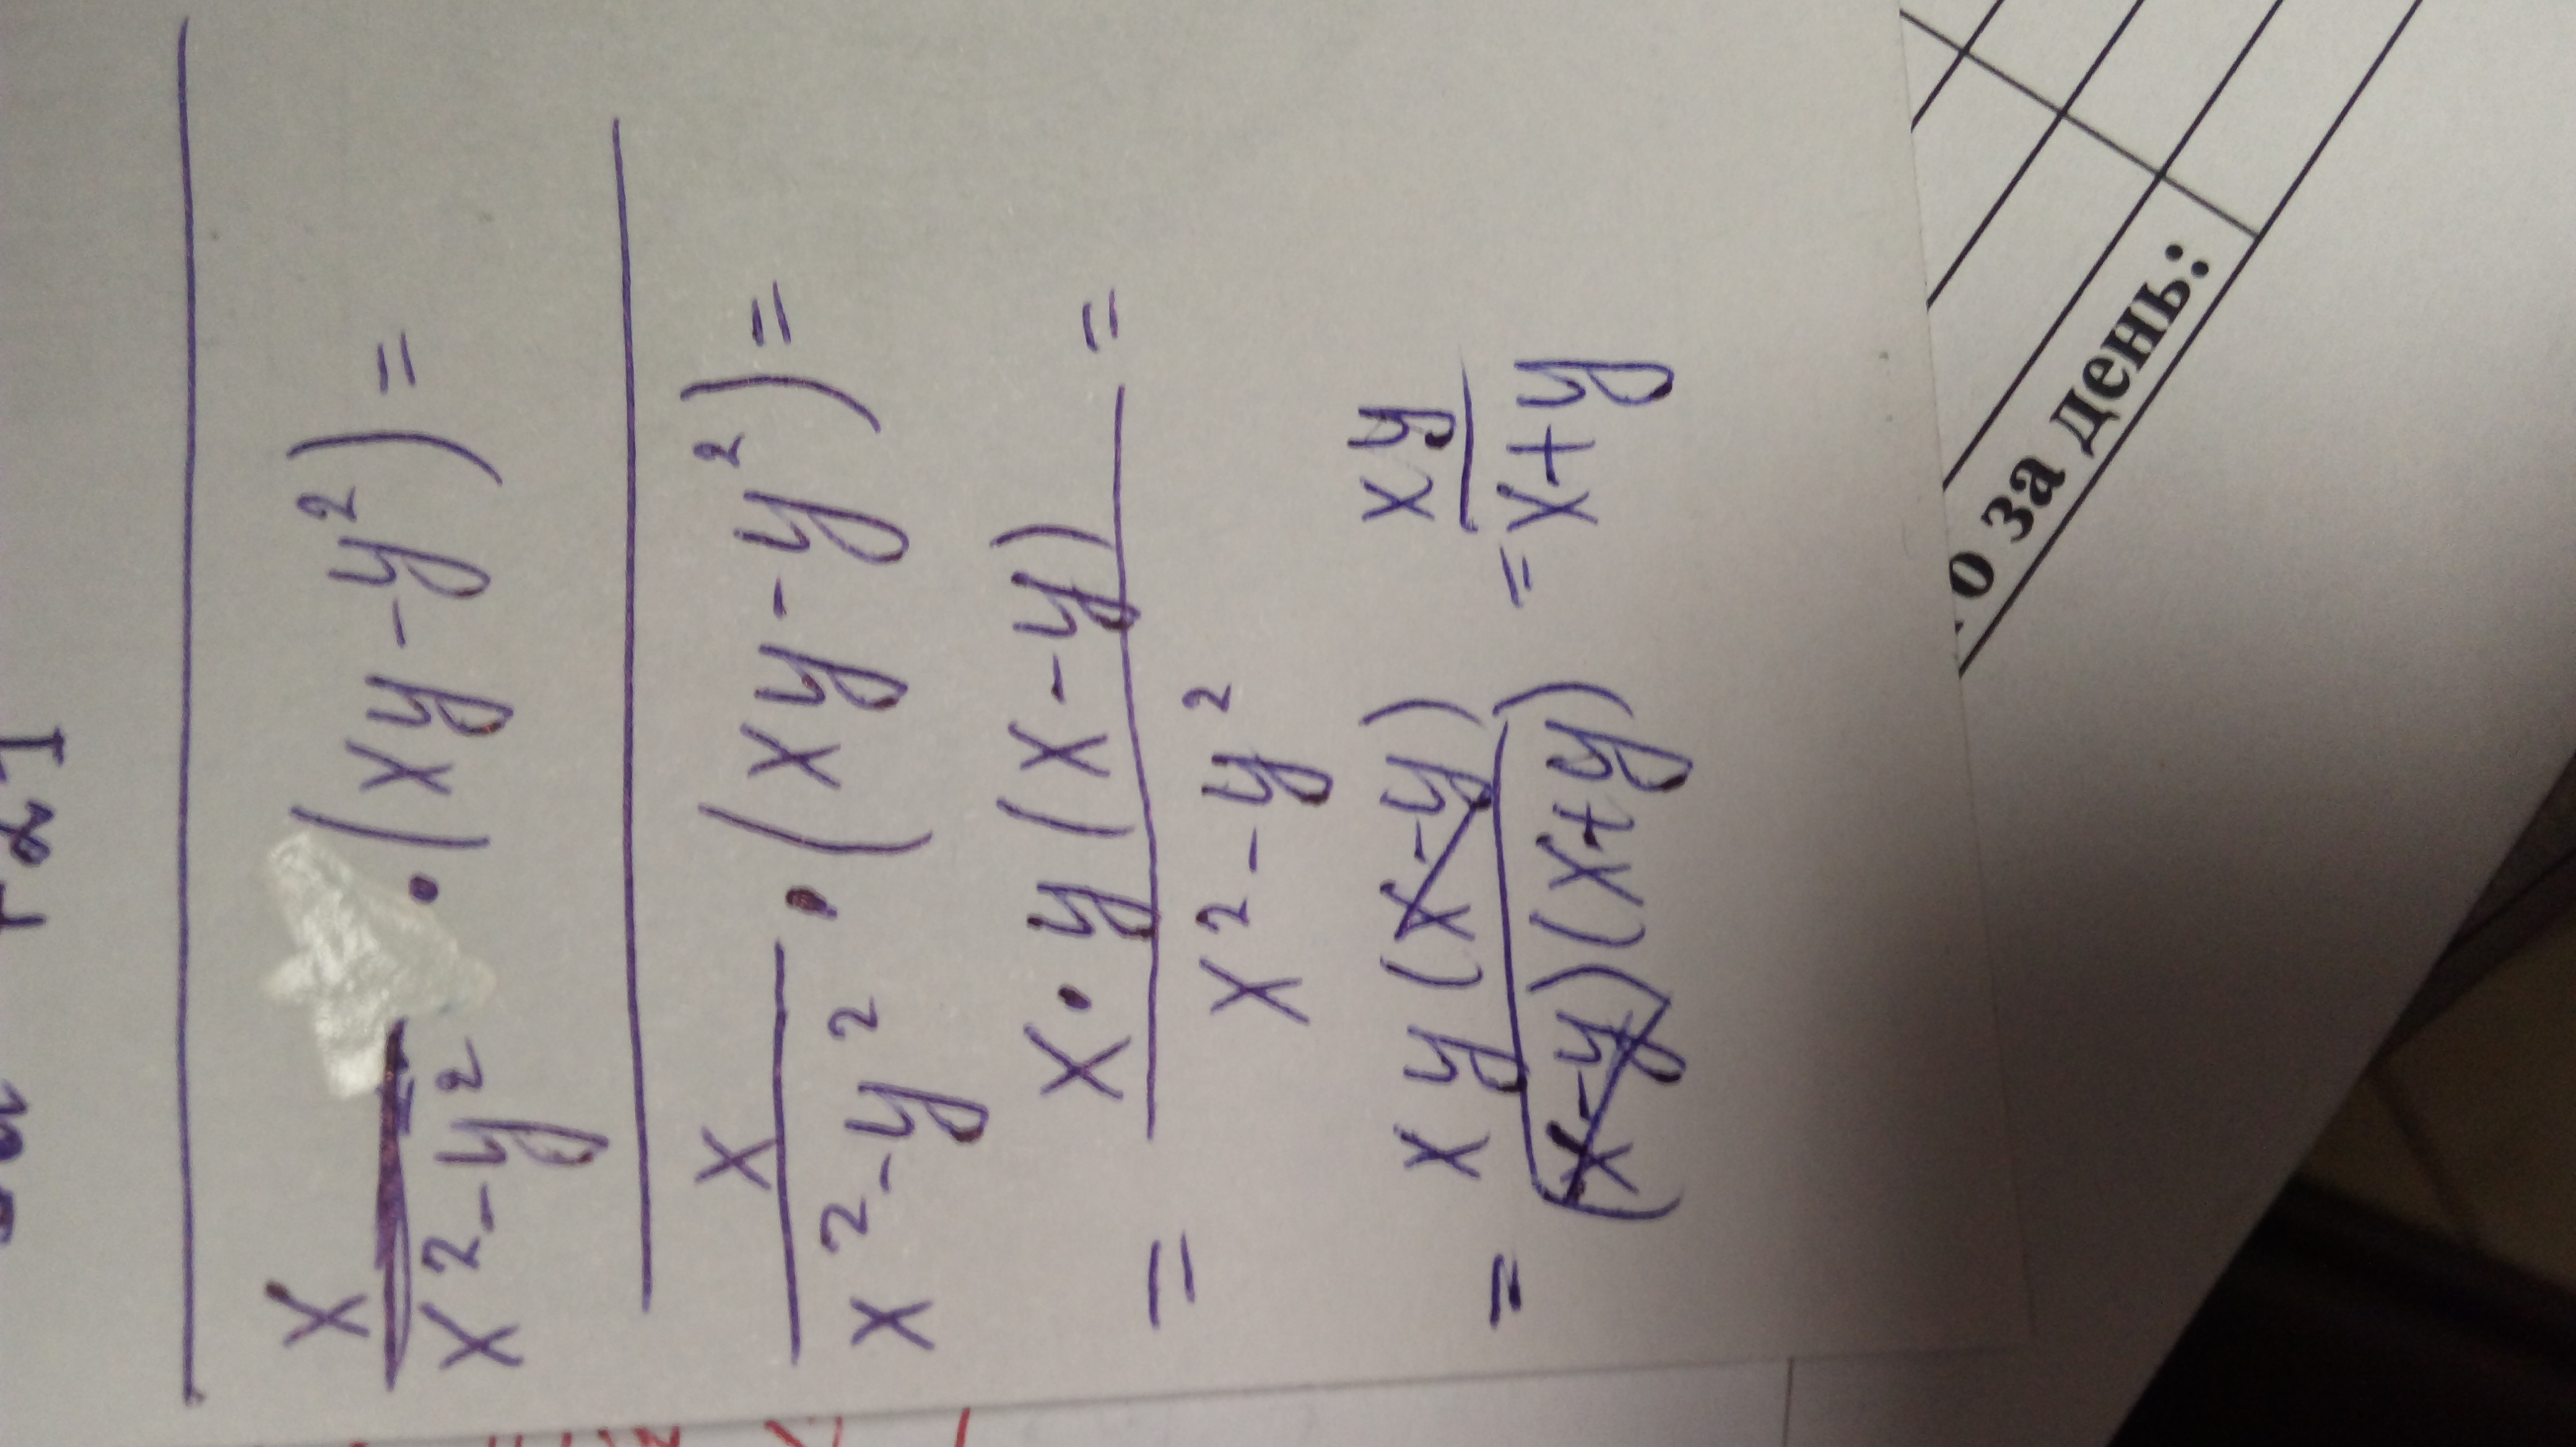 x/(x²-y²) · (xy-y²) =
x/(x²-y²) · (xy-y²) =
= x·y(x-y)/(x²-y²) =
= xy(x-y)/((x-y)(x+y)) = xy/(x+y)
о за день: